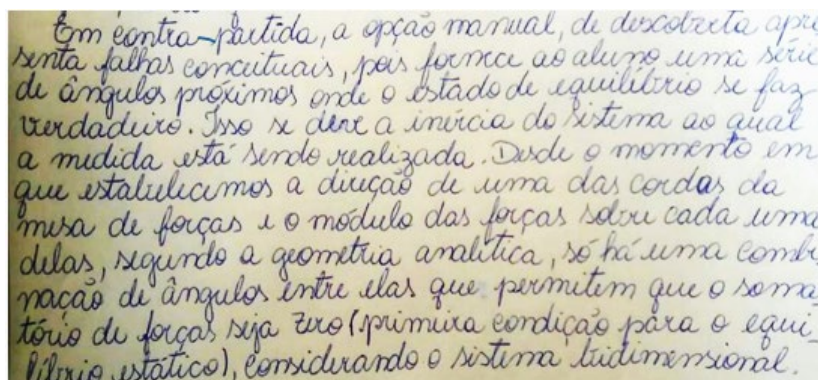 Em contra-partida, a opção manual, de descoberta apre
senta falhas conceituais, pois fornece ao aluno uma série
de ângulos próximos onde o estado de equilíbrio se faz
verdadeiro. Isso se deve a inércia do sistema ao qual
a medida está sendo realizada. Desde o momento em
que estabelecemos a direção de uma das cordas da
mesa de forças e o módulo das forças sobre cada uma
delas, segundo a geometria analítica, só há uma combi
nação de ângulos entre elas que permitem que o soma
tório de forças seja zero (primeira condição para o equi_
líbrio estático), considerando o sistema tridimensional.